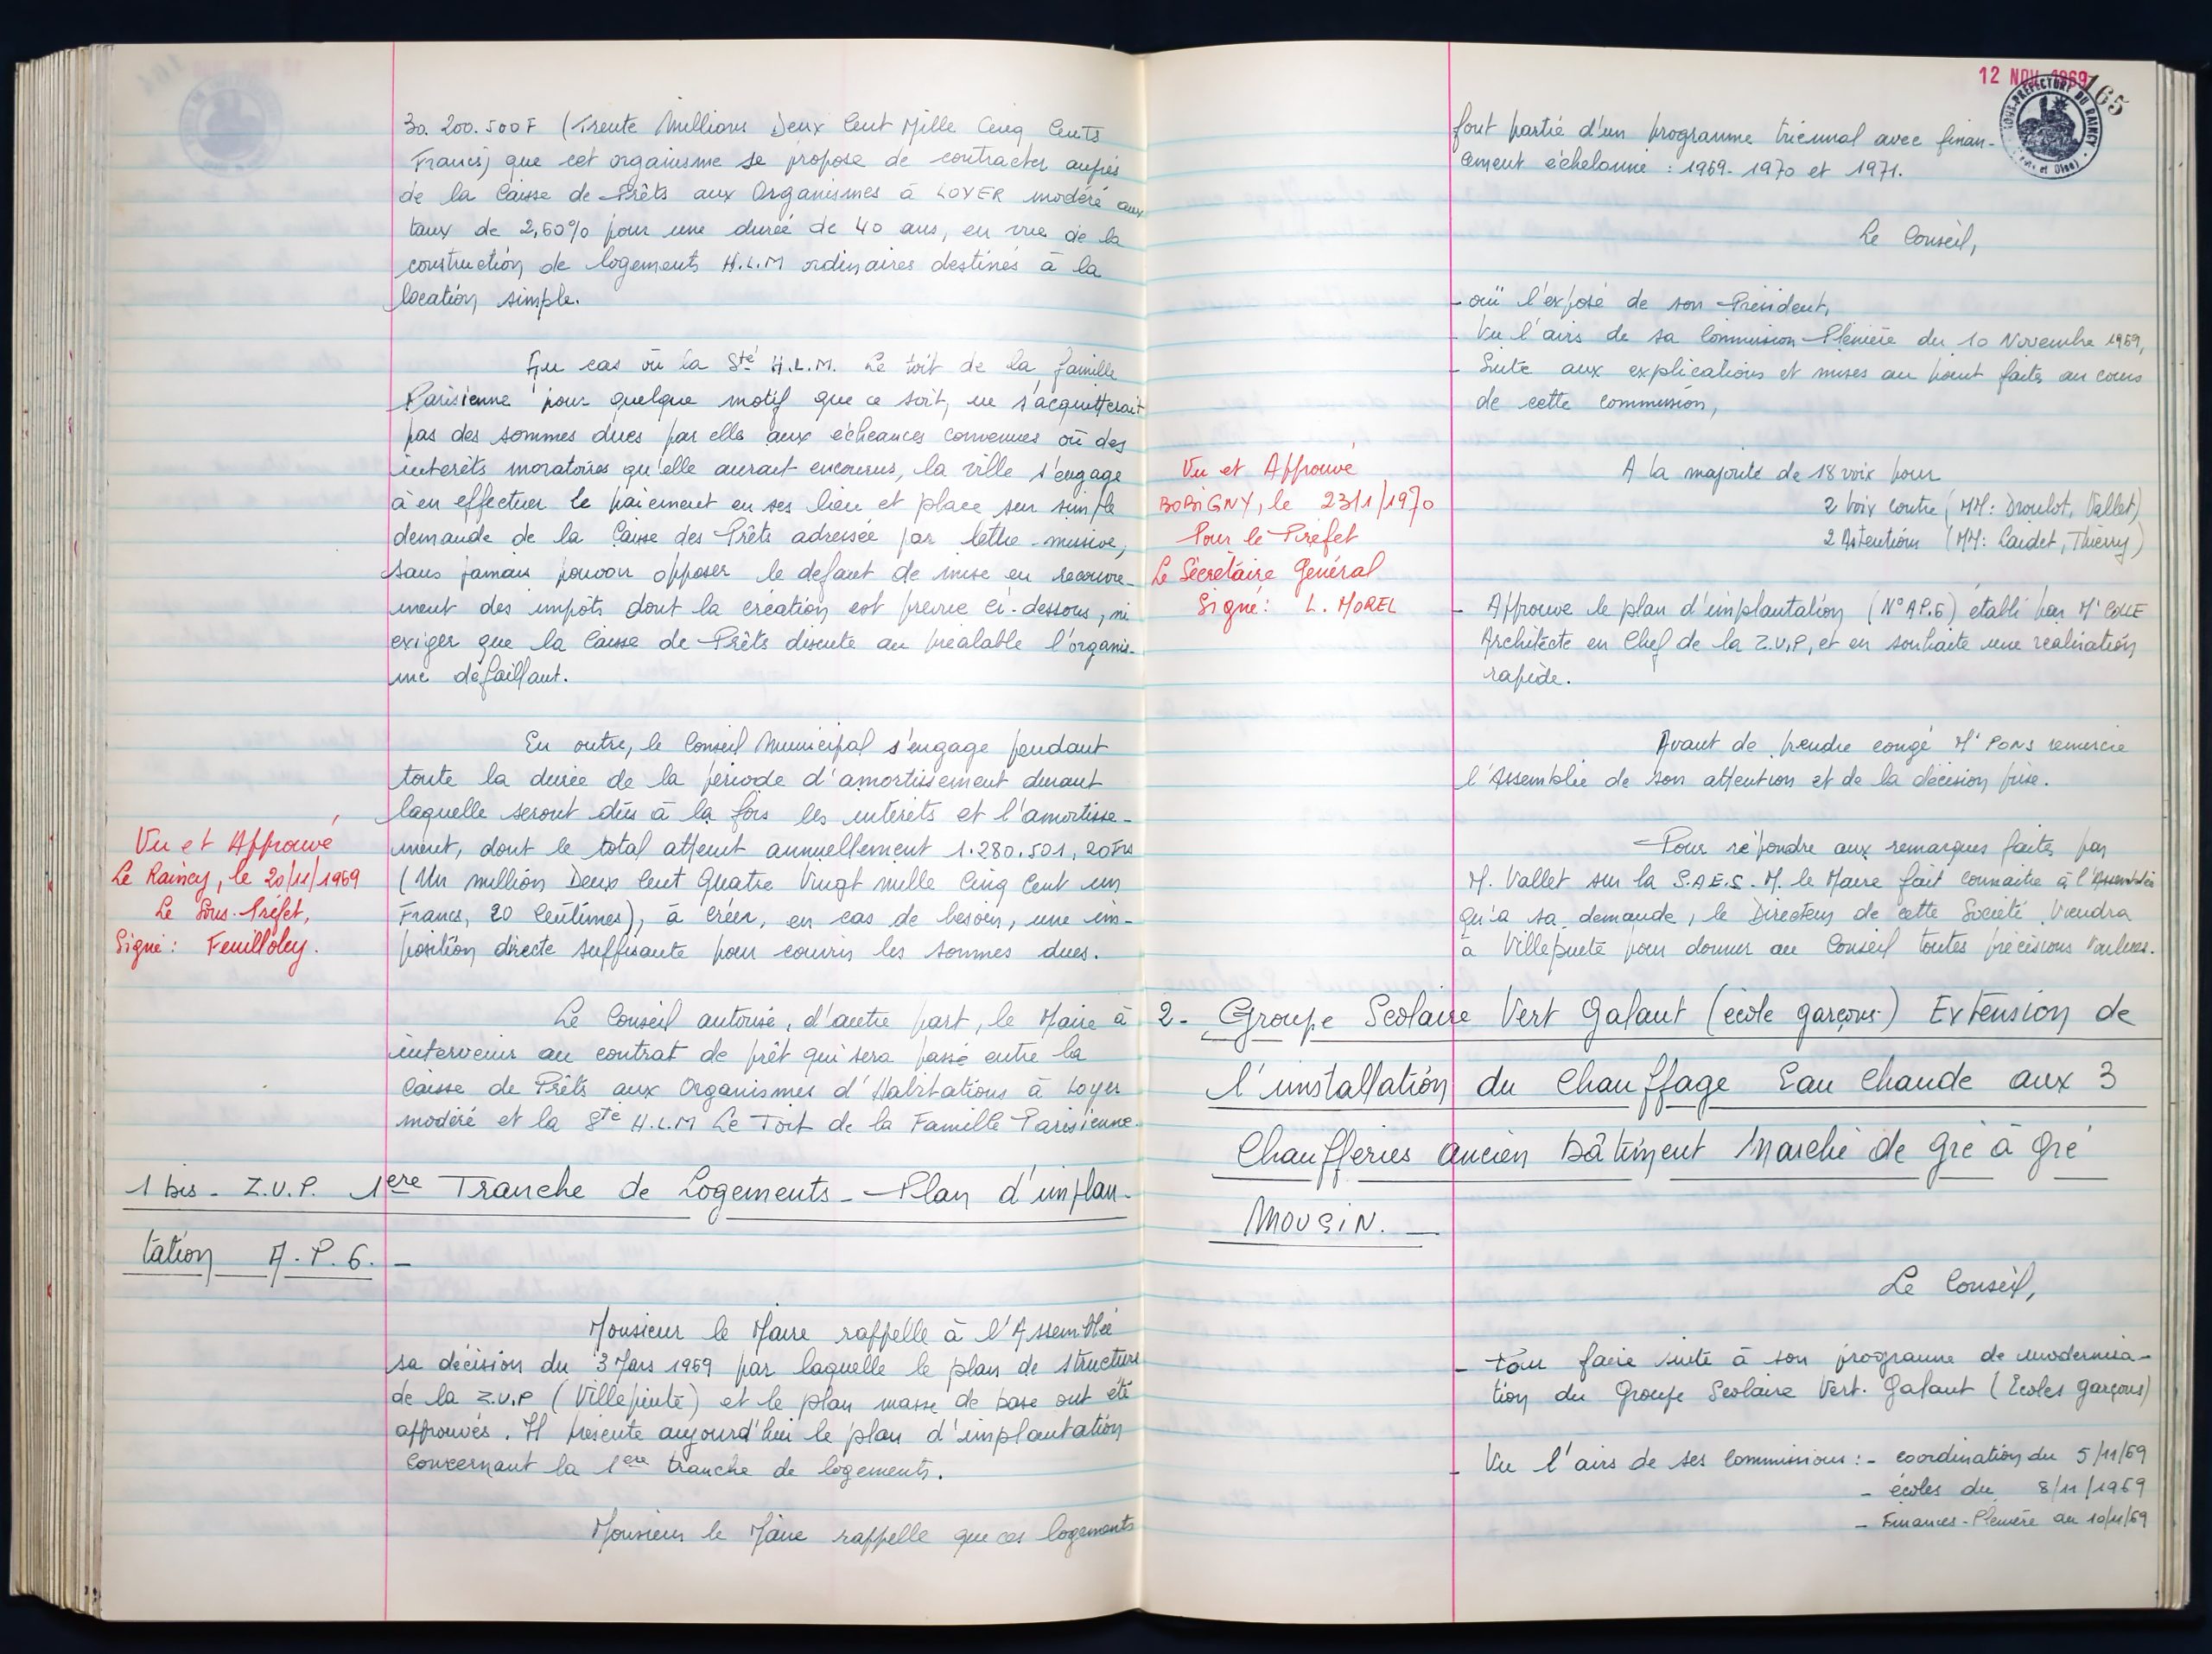 30.200.500F (Trente Millions Deux Cent Mille Cinq Cents
Francs) que cet organisme se propose de contracter auprès
de la Caisse de Prêts aux Organismes à LOYER modéré aux
taux de 2,60% pour une durée de 40 ans, en vue de la
construction de logements H.L.M ordinaires destinés à la
location simple.
Au cas où la Sté H.L.M. Le toit de la famille
Parisienne pour quelque motif que ce soit, ne s'acquitterait
pas des sommes dues par elle aux échéances convenues ou des
intérêts moratoires qu'elle aurait encourus, la ville s'engage
à en effectuer le paiement en ses lieu et place sur simple
demande de la Caisse des Prêts adressée par lettre-missive,
sans jamais pouvoir opposer le défaut de mise en recouvre-
ment des impôts dont la création est prévue ci-dessous, ni
exiger que la Caisse de Prêts discute au préalable l'organis-
me défaillant.
En outre, le Conseil Municipal s'engage pendant
toute la durée de la période d'amortissement durant
laquelle seront dûs à la fois les intérêts et l'amortisse-
ment, dont le total atteint annuellement 1.280.501,20Frs
(Un million Deux Cent Quatre Vingt mille Cinq Cent un
Francs, 20 Centimes), à créer, en cas de besoin, une im-
position directe suffisante pour couvrir les sommes dues.
Vu et Approuvé
Le Raincy, le 20/11/1969
Le Sous-Préfet,
Signé: Feuilloley.
Le Conseil autorise, d'autre part, le Maire à
intervenir au contrat de prêt qui sera passé entre la
Caisse de Prêts aux Organismes d'Habitations à Loyer
modéré et la Sté H.L.M Le Toit de la Famille Parisienne.
1 bis - Z.U.P. 1ere Tranche de Logements - Plan d'implan-
tation A.P.6. -
Monsieur le Maire rappelle à l'Assemblée
sa décision du 3 Mars 1969 par laquelle le plan de structure
de la Z.U.P (Villepinte) et le plan masse de base ont été
approuvés. Il présente aujourd'hui le plan d'implantation
concernant la 1ere tranche de logements.
Monsieur le Maire rappelle que ces logements
12 NOV. 1969
165
SOUS-PRÉFECTURE DU RAINCY
font partie d'un programme triennal avec finan-
cement échelonné : 1969-1970 et 1971.
Le Conseil,
- ouï l'exposé de son Président,
- Vu l'avis de sa Commission Plénière du 10 Novembre 1969,
- Suite aux explications et mises au point faites au cours
de cette commission,
A la majorité de 18 voix pour
2 Voix contre (MM: Droulot, Vallet)
2 Abstentions (MM: Caidet, Thierry)
Vu et Approuvé
BOBIGNY, le 23/1/1970
Pour le Préfet
Le Secrétaire Général
Signé: L. MOREL
- Approuve le plan d'implantation (N° AP.6) établi par Mr COLLE
Architecte en Chef de la Z.U.P, et en souhaite une réalisation
rapide.
Avant de prendre congé Mr PONS remercie
l'Assemblée de son attention et de la décision prise.
Pour répondre aux remarques faites par
M. Vallet sur la S.A.E.S. M. le Maire fait connaitre à l'Assemblée
qu'à sa demande, le Directeur de cette Société Viendra
à Villepinte pour donner au Conseil toutes précisions Voulues.
2 - Groupe Scolaire Vert Galant (école garçons) Extension de
l'installation du Chauffage Eau Chaude aux 3
Chaufferies ancien bâtiment Marché de gré à gré
MOUSIN. -
Le Conseil,
- Pour faire suite à son programme de modernisa-
tion du Groupe Scolaire Vert-Galant (Ecoles garçons)
- Vu l'avis de ses Commissions: - coordination du 5/11/69
- écoles du 8/11/1969
- Finances-Plénière du 10/11/69